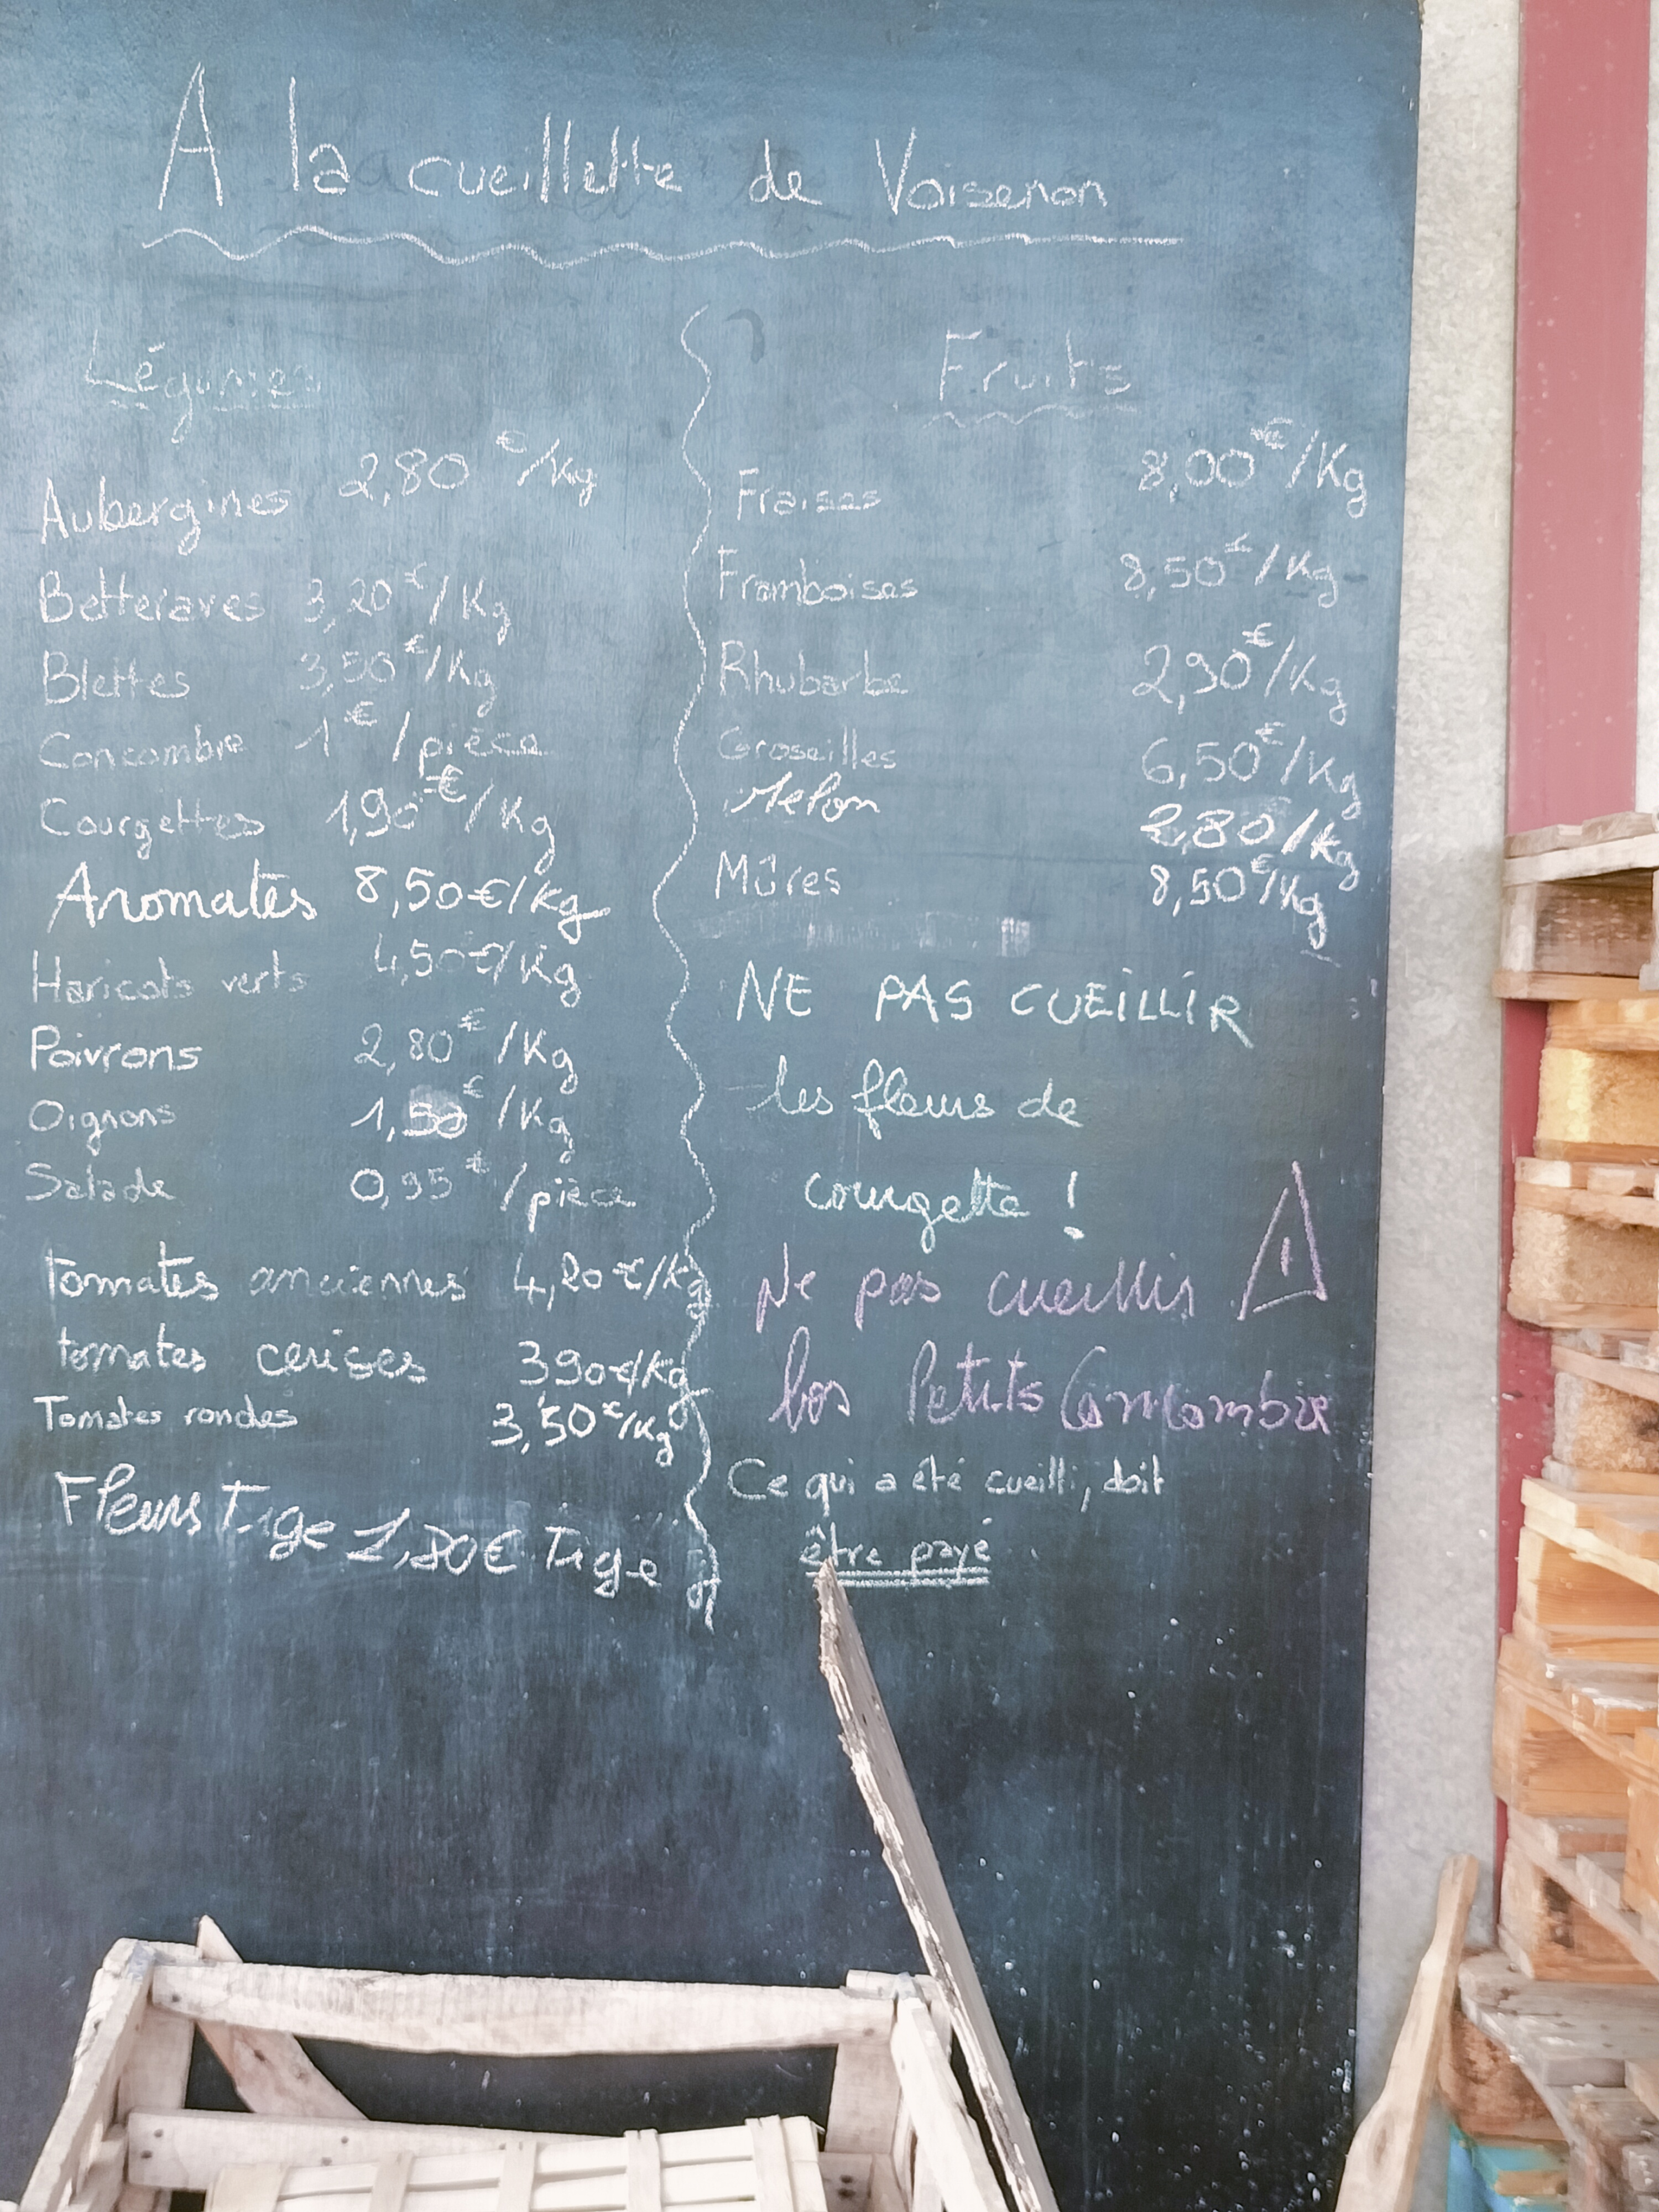 A la cueillette de Voisenon
Légumes
Aubergines 2,80 €/Kg
Betteraves 3,20 €/Kg
Blettes 3,50 €/Kg
Concombre 1 €/pièce
Courgettes 1,90 €/Kg
Aromates 8,50 €/Kg
Haricots verts 4,50 €/Kg
Poivrons 2,80 €/Kg
Oignons 1,50 €/Kg
Salade 0,95 €/pièce
Tomates anciennes 4,20 €/Kg
tomates cerises 3,90 €/Kg
Tomates rondes 3,50 €/Kg
Fleurs Tige 1,80 € Tige
Fruits
Fraises 8,00 €/Kg
Framboises 8,50 €/Kg
Rhubarbe 2,90 €/Kg
Groseilles 6,50 €/Kg
Melon 2,80/Kg
Mûres 8,50 €/Kg
NE PAS CUEILLIR
les fleurs de
courgette !
Ne pas cueillir
les Petits Concombre
Ce qui a été cueilli, doit
être payé